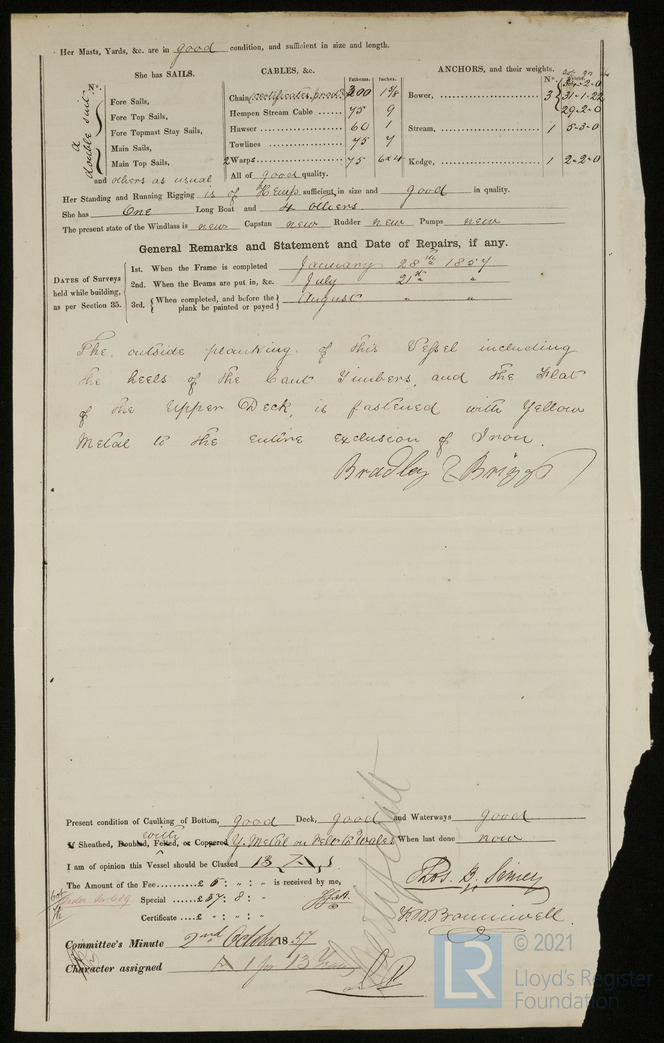 Her Masts, Yards, &c. are in good condition, and sufficient in size and length.
She has SAILS.
No.
a double suit
Fore Sails,
Fore Top Sails,
Fore Topmast Stay Sails,
Main Sails,
Main Top Sails,
and others as usual
CABLES, &c.
Fathoms. Inches.
Chain Certificates prod. 300
Hempen Stream Cable ...... 75 9
Hawser ...... 60 1
Towlines ...... 75 7
2 Warps ...... 75 6 & 4
All of good quality.
ANCHORS, and their weights.
No.
Bower, 3 34-2-0
31-1-22
29-2-0
Stream, 1 5-3-0
Kedge, 1 2-2-0
Her Standing and Running Rigging is of Hemp sufficient in size and good in quality.
She has One Long Boat and 4 others
The present state of the Windlass is new Capstan new Rudder new Pumps new
General Remarks and Statement and Date of Repairs, if any.
DATES of Surveys held while building, as per Section 35.
1st. When the Frame is completed January 28th 1857
2nd. When the Beams are put in, &c. July 21st "
3rd. { When completed, and before the plank be painted or payed } August " "
The outside planking of this Vessel including
the heels of the Cant Timbers, and the Flat
of the Upper Deck, is fastened with Yellow
Metal to the entire exclusion of Iron.
Bradley & Briggs
Present condition of Caulking of Bottom, good Deck, good and Waterways good
If Sheathed, Doubled, Felted, or Coppered with Y. Metal on Felt to Wales When last done now
I am of opinion this Vessel should be Classed 13
The Amount of the Fee .......... £ 5 : " : " is received by me,
Special ...... £ 57 : 8 : "
Certificate .... £ " : " : "
Committee's Minute 2nd October 1857
Character assigned A 1 for 13 Years
© 2021
LR
Lloyd's Register
Foundation